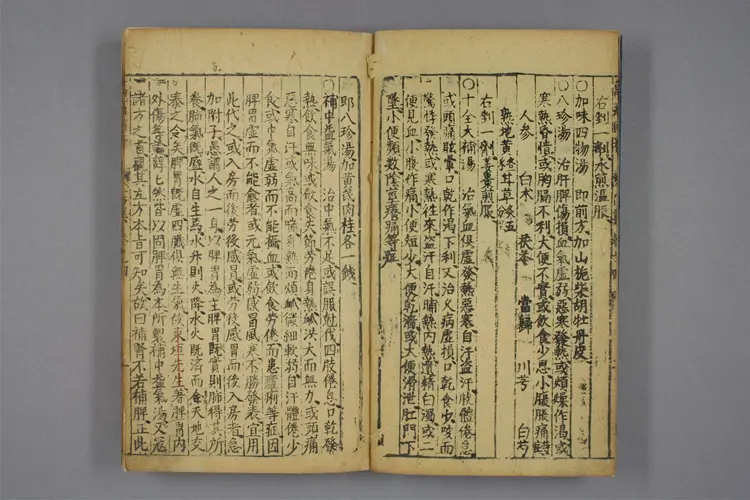 右剉一劑水煎溫服
○加味四物湯 即前方加山梔柴胡牡丹皮
○八珍湯 治肝脾傷損血氣虛弱惡寒發熱或煩燥作渴或
寒熱昏憒或胸膈不利大便不實或飲食少思小腹脹痛時
人參 白术 茯苓 當歸 川芎 白芍
熟地黃 甘草
右剉一劑姜棗煎服
○十全大補湯 治氣血俱虛發熱惡寒自汗盜汗肢體倦怠
或頭痛眩暈口乾作渴下利又治久病虛損口乾食少咳而
驚悸發熱或寒熱往來盜汗自汗晡熱內熱遺精白濁或二
便見血小腹作痛小便短少大便乾澁或大便滑泄肛門下
墜小便頻數陰莖痛等症
耶八珍湯加黃芪肉桂各一錢
○補中益氣湯 治中氣不足或誤服尅伐四肢倦怠口乾發
熱飲食無味或飲食失節勞倦身熱脉洪大而無力或頭痛
惡寒自汗或氣高而喘身熱而煩脉微細軟弱自汗體倦少
食或中氣虛弱而不能攝血或飲食勞倦而患瘧痢等症因
脾胃虛而不能愈者或元氣虛弱感冒風寒不勝發表宜用
此代之或入房而後勞役感冒或勞役感冒而後入房者急
加附子愚謂人之一身以脾胃為主脾胃既實則肺得其所
養肺氣既盛水自生焉水升則火降水火既濟而天地交
泰之令矣脾胃既虛四臟俱無生氣故東垣先生著脾胃內
外傷等論諄諄皆以固脾胃為本所製補中益氣湯又冠
諸方之首觀其立方本旨可知矣故曰補腎不若補脾正此